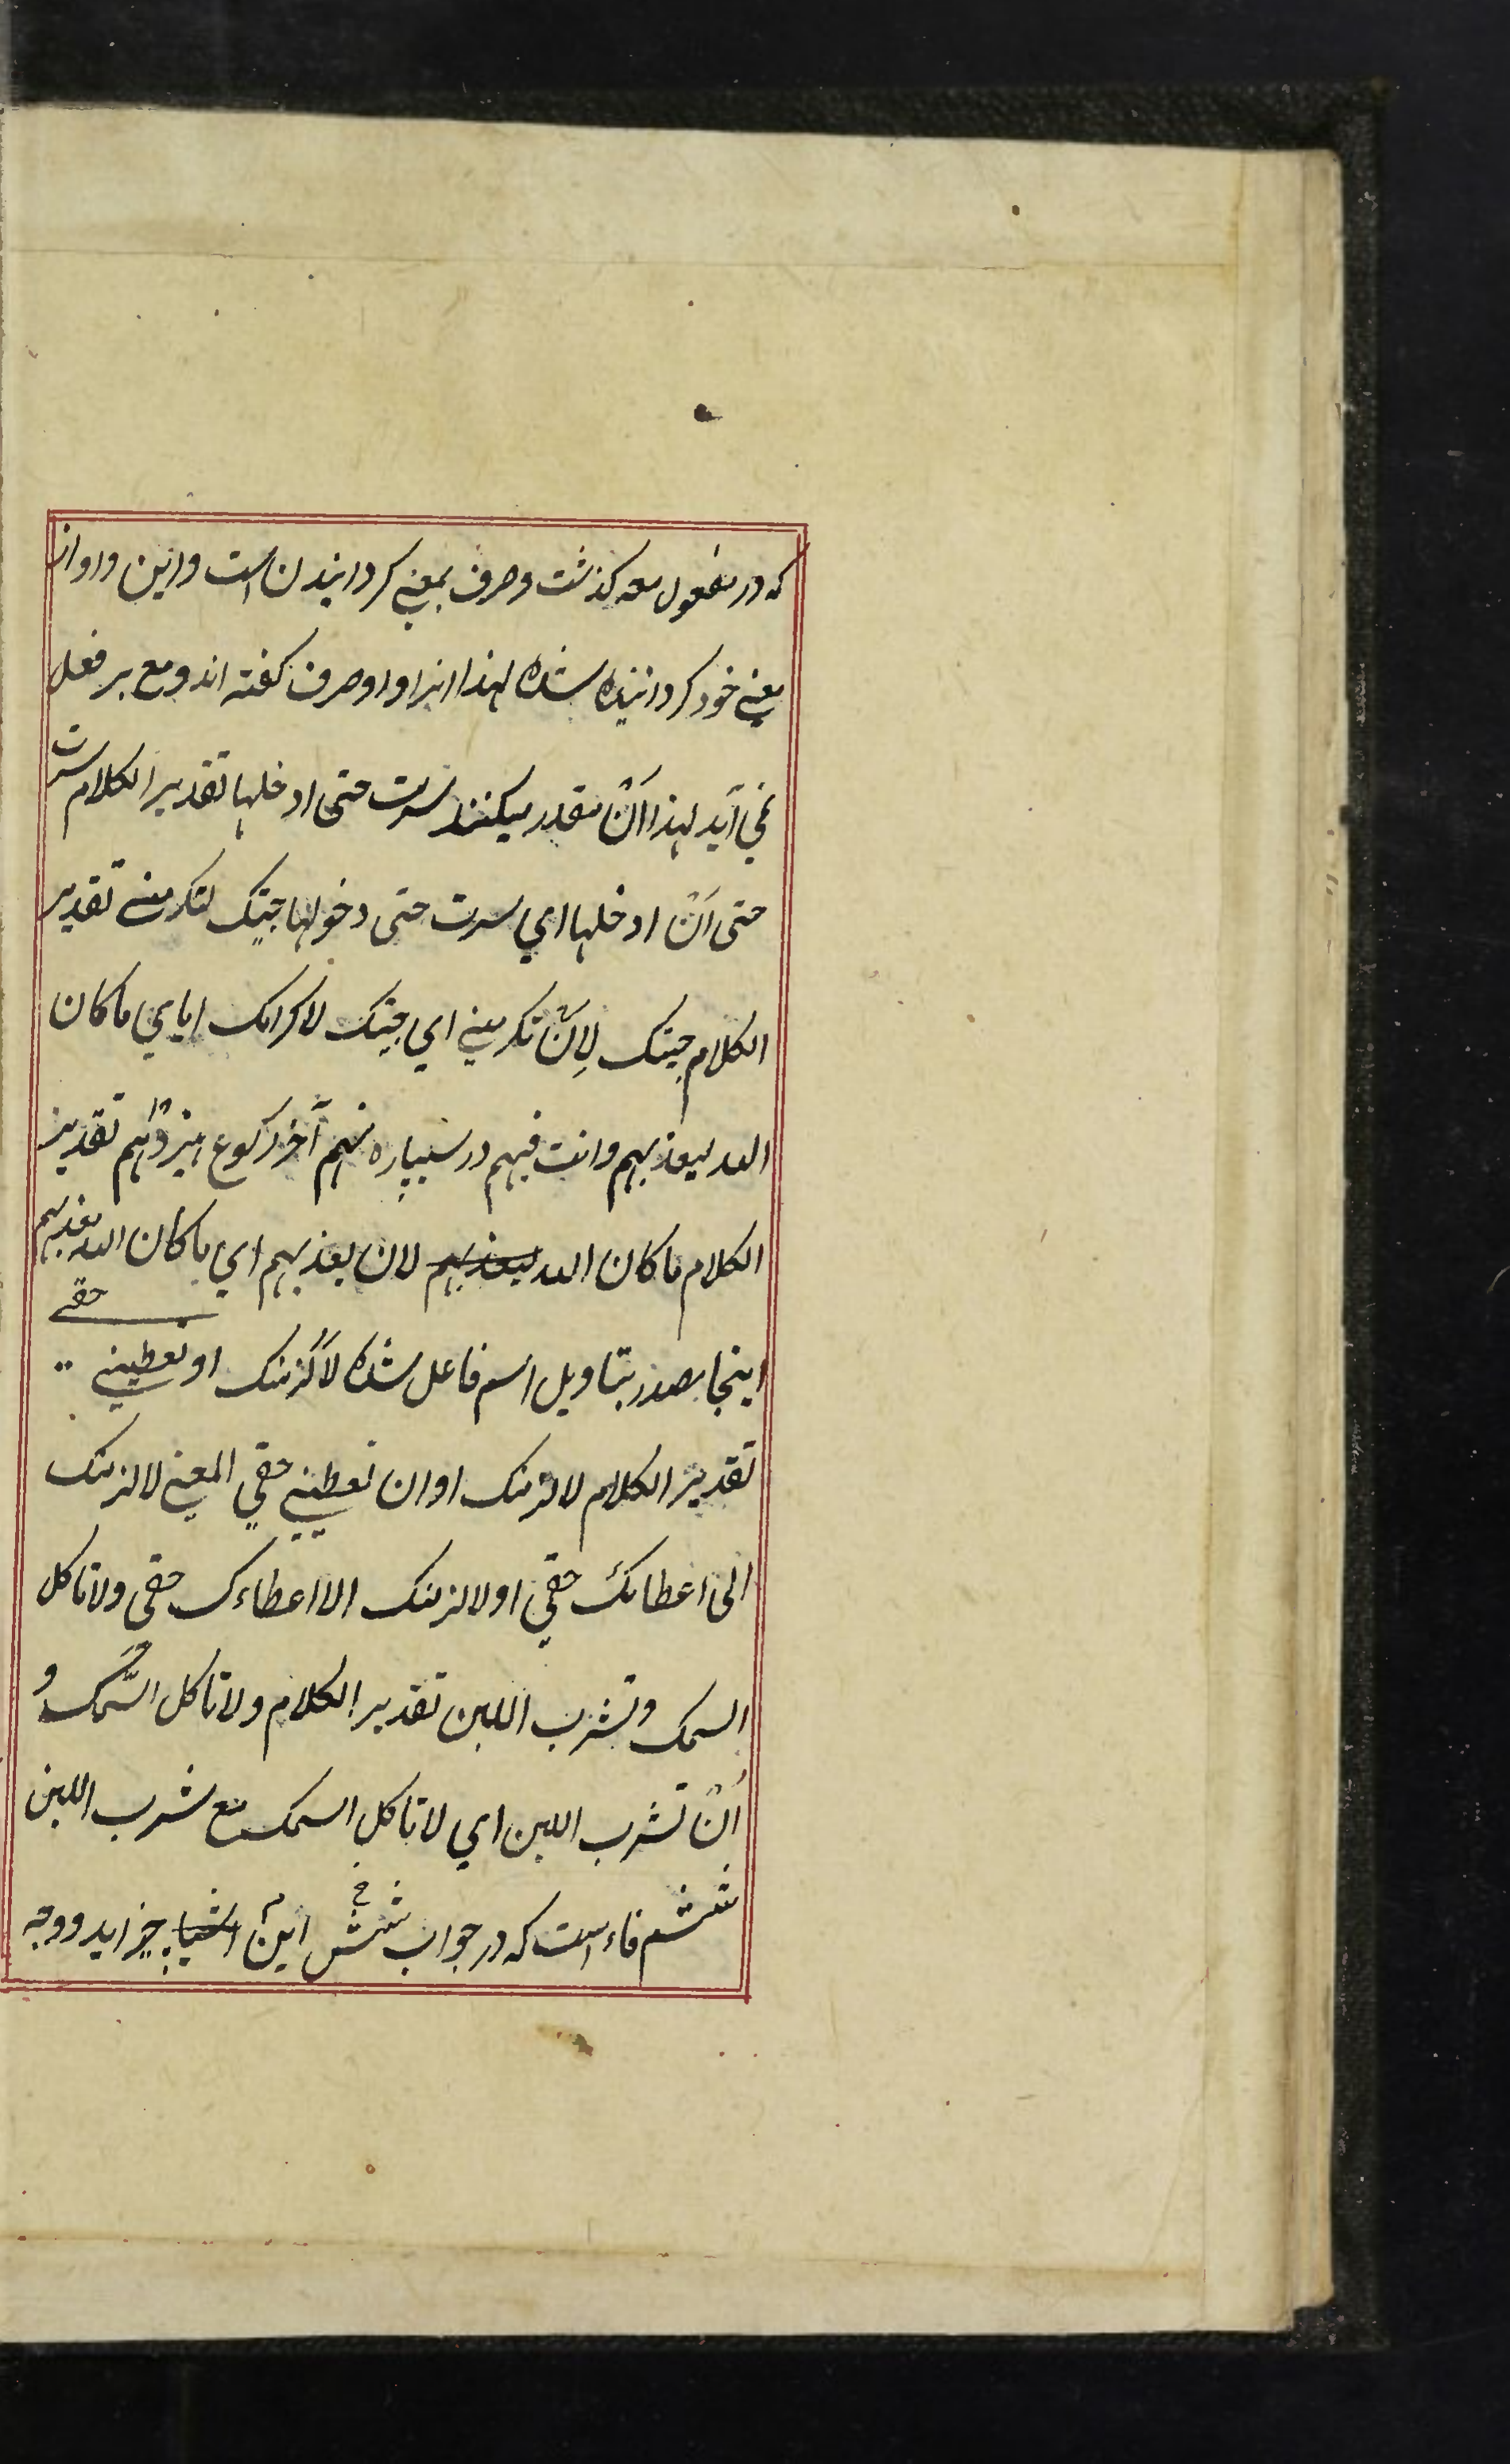 که در مفعول معه کذشت وصرف بمعنی کردانیدن است واین واو از
معنی خود کردانیده شده لهذا اینرا واو صرف کفته اند ومع بر فعل
نمی آید لهذا اَنْ مقدر میکنند سرت حتی ادخلها تقدیر الکلام سرت
حتی اَنْ ادخلها ای سرت حتی دخولها جیتک لتکرمنی تقدیر
الکلام جیتک لِاَنْ تکرمنی ای جیتک لاکرامک ایای ماکان
الله لیعذبهم وانت فیهم در سیپاره نهم آخر رکوع هیزدهم تقدیر
الکلام ماکان الله لیعذبهم لان یعذبهم ای ماکان الله یعذبهم
اینجا مصدر بتاویل اسم فاعل شده لاَلْزمنک او تعطینی حقی
تقدیر الکلام لالزمنک او ان تعطینی حقی المعنی لالزمنک
الی اعطائک حقی او لالزمنک الا اعطاءک حقی ولاتاکل
السمک وتشرب اللبن تقدیر الکلام ولاتاکل السَّمک و
اَنْ تشرب اللبن ای لاتاکل السمک مع شرب اللبن
ششم فاء است که در جواب شش این اشیا چیز اید ووجه